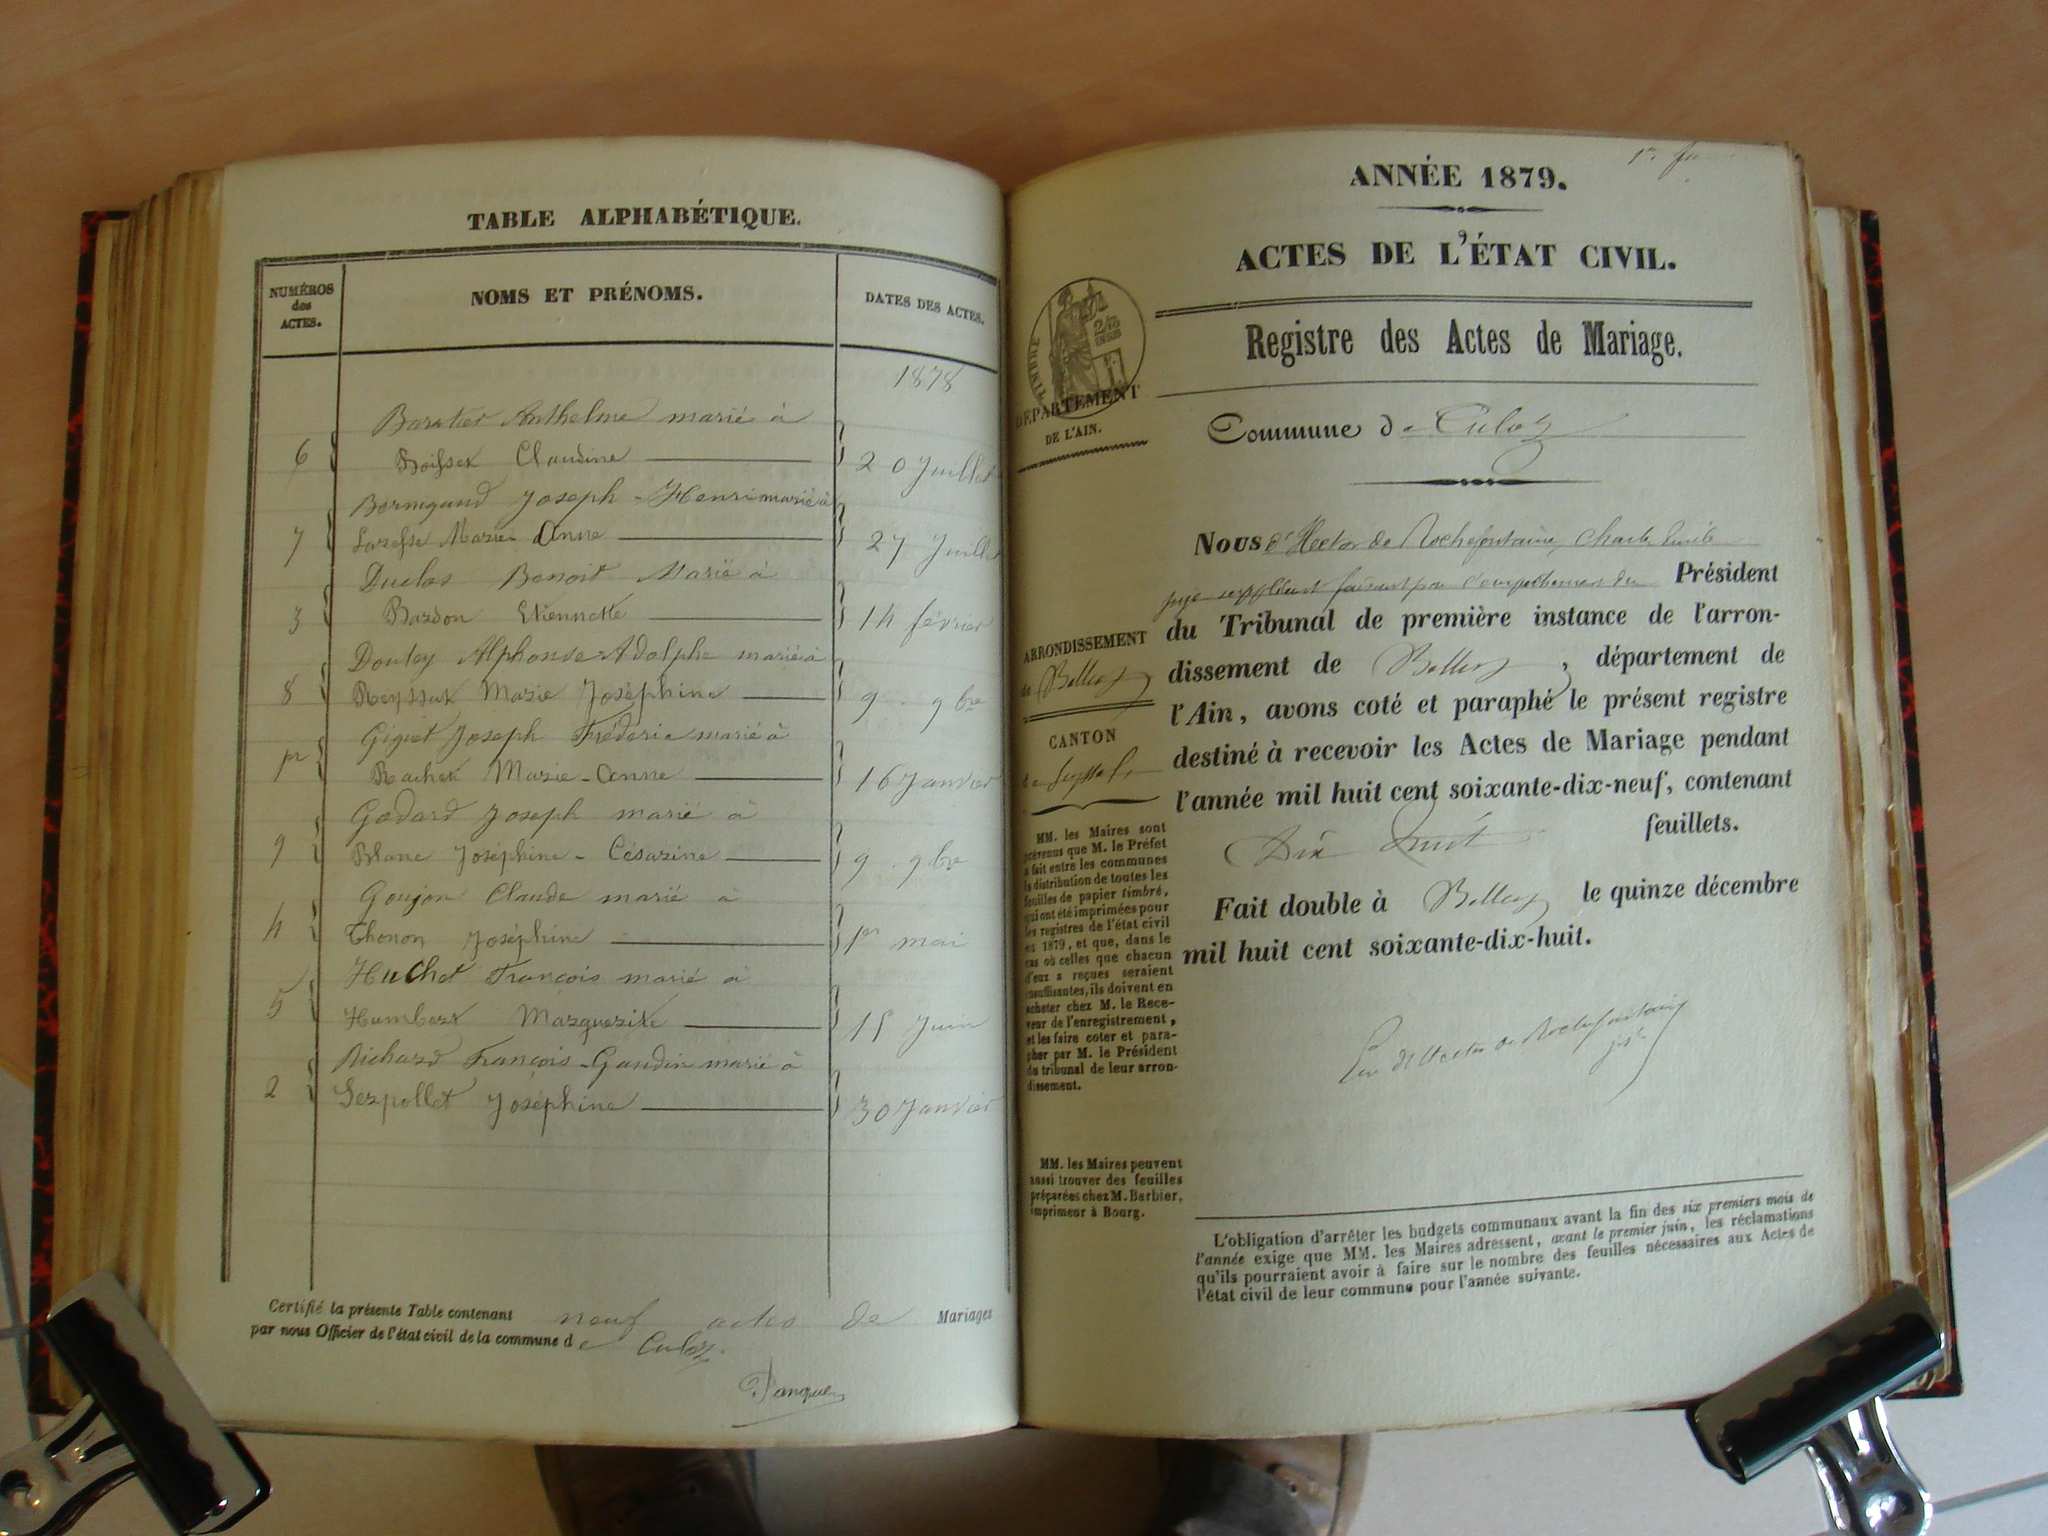 TABLE ALPHABÉTIQUE.
NUMÉROS
des
ACTES.
NOMS ET PRÉNOMS.
DATES DES ACTES.
1878
Anthelme marié à
6 Claudine 20 Juillet
Joseph-Henri marié à
7 Marie-Anne 27 Juillet
Duclos Benoit Marié à
3 Bardon Etiennette 14 février
Alphonse-Adolphe marié à
8 Marie Joséphine 9 9bre
Giguet Joseph Frédéric marié à
1er Rachex Marie-Anne 16 Janvier
Godard Joseph marié à
9 Blanc Joséphine-Césarine 9 9bre
Goujon Claude marié à
4 Thonon Joséphine 1er mai
Huchet François marié à
5 Humbert Marguerite 15 Juin
Richard François-Gaudin marié à
2 Serpollet Joséphine 30 Janvier
Certifié la présente Table contenant neuf actes de Mariages
par nous Officier de l'état civil de la commune de Culoz.
ANNÉE 1879.
ACTES DE L'ÉTAT CIVIL.
Registre des Actes de Mariage.
Commune de Culoz
TIMBRE
DÉPARTEMENT
DE L'AIN.
ARRONDISSEMENT
de Belley
CANTON
de Seyssel
MM. les Maires sont
prévenus que M. le Préfet
a fait entre les communes
la distribution de toutes les
feuilles de papier timbré,
qui ont été imprimées pour
les registres de l'état civil
en 1879, et que, dans le
cas où celles que chacun
d'eux a reçues seraient
insuffisantes, ils doivent en
acheter chez M. le Rece-
veur de l'enregistrement,
et les faire coter et para-
pher par M. le Président
du tribunal de leur arron-
dissement.
MM. les Maires peuvent
aussi trouver des feuilles
préparées chez M. Barbier,
imprimeur à Bourg.
Nous d'Hector de Rochefontaine, Charles Emile
juge suppléant faisant par empêchement du Président
du Tribunal de première instance de l'arron-
dissement de Belley, département de
l'Ain, avons coté et paraphé le présent registre
destiné à recevoir les Actes de Mariage pendant
l'année mil huit cent soixante-dix-neuf, contenant
Dix huit feuillets.
Fait double à Belley le quinze décembre
mil huit cent soixante-dix-huit.
d'Hector de Rochefontaine
L'obligation d'arrêter les budgets communaux avant la fin des six premiers mois de
l'année exige que MM. les Maires adressent, avant le premier juin, les réclamations
qu'ils pourraient avoir à faire sur le nombre des feuilles nécessaires aux Actes de
l'état civil de leur commune pour l'année suivante.